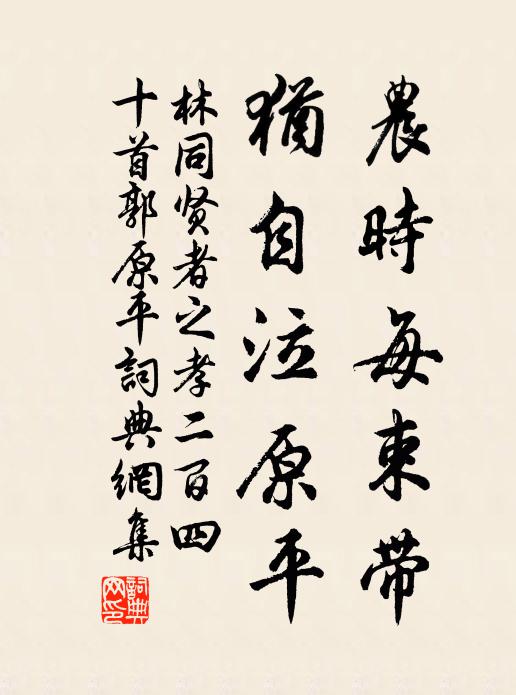 農時每束帶
猶自泣原平
林同賢者之孝二百四
十首郭原平詞典網集
詞典網印